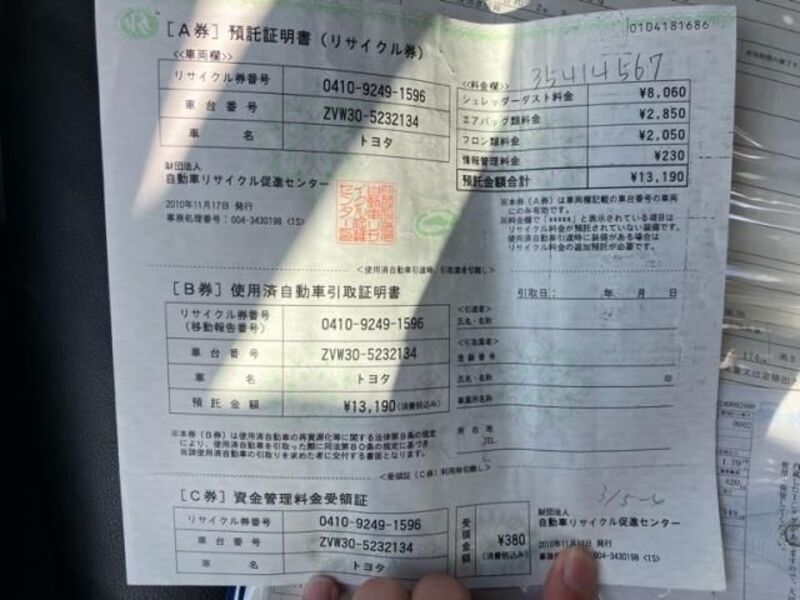 0104181686
[A券] 預託証明書 (リサイクル券)
35414567
<<車両欄>>
リサイクル券番号 0410-9249-1596
車台番号 ZVW30-5232134
車名 トヨタ
<<料金欄>>
シュレッダーダスト料金 ¥8,060
エアバッグ類料金 ¥2,850
フロン類料金 ¥2,050
情報管理料金 ¥230
預託金額合計 ¥13,190
財団法人
自動車リサイクル促進センター
2010年11月17日 発行
事務処理番号:004-3430198 <1S>
※本券(A券)は車両欄記載の車台番号の車両
にのみ有効です。
※料金欄で「*****」と表示されている項目は
リサイクル料金が預託されていない装備です。
使用済自動車引渡時に装備がある場合は
リサイクル料金の追加預託が必要です。
<使用済自動車引渡時、引取業者切離し>
[B券] 使用済自動車引取証明書
引取日: 年 月 日
リサイクル券番号
(移動報告番号) 0410-9249-1596
車台番号 ZVW30-5232134
車名 トヨタ
預託金額 ¥13,190(消費税込み)
<引渡者>
氏名・名称
<引取業者>
登録番号
氏名・名称 印
事業所名称
所在地
TEL
※本券(B券)は使用済自動車の再資源化等に関する法律第9条の規定
により、使用済自動車を引取った際に同法第80条の規定に基づき、
当該使用済自動車の引取りを求めた者に交付する書面となります。
<受領証(C券)利用時切離し>
[C券] 資金管理料金受領証
リサイクル券番号 0410-9249-1596
車台番号 ZVW30-5232134
車名 トヨタ
受領金額 ¥380
(消費税込み)
財団法人
自動車リサイクル促進センター
004-3430198 <1S>